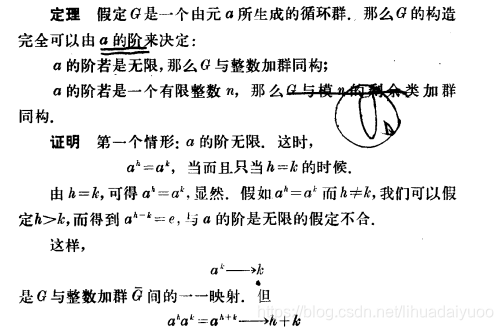 定理 假定G是一个由元a所生成的循环群.那么G的构造
完全可以由a的阶来决定:
a的阶若是无限,那么G与整数加群同构;
a的阶若是一个有限整数n,那么G与模n的剩余类加群
同构.
证明 第一个情形:a的阶无限.这时,
aʰ=aᵏ,当而且只当h=k的时候.
由h=k,可得aʰ=aᵏ,显然.假如aʰ=aᵏ而h≠k,我们可以假
定h>k,而得到aʰ⁻ᵏ=e,与a的阶是无限的假定不合.
这样,
aᵏ⟶k
是G与整数加群G̅间的一一映射.但
https://blog.csdn.net/lihuadaiyuoo
aʰaᵏ=aʰ⁺ᵏ⟶h+k